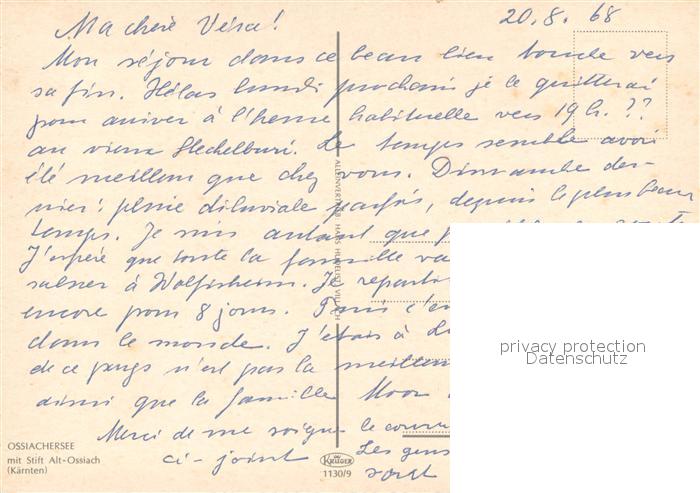 20.8.68
Ma chère Véra!
Mon séjour dans ce beau lieu touche vers
sa fin. Hélas lundi prochain je le quitterai
pour arriver à l'heure habituelle vers 19 h. ??
au vieux Hechelburi. Le temps semble avoir
été meilleur que chez vous. Dimanche der-
nier: pluie diluviale parfois, depuis le plus beau
temps. Je suis autant que
J'espère que toute la famille va
saluer à Wolfisheim. Je repartirai
encore pour 8 jours. Puis c'est
dans le monde. J'étais à
de ce pays n'est pas la meilleure
ainsi que la famille Moor
Merci de me soigner le courrier
ci-joint Les gens
sont
ALLEINVERTRIEB HANS HUBELIST VILLACH
privacy protection
Datenschutz
OSSIACHERSEE
mit Stift Alt-Ossiach
(Kärnten)
KRÜGER
1130/9